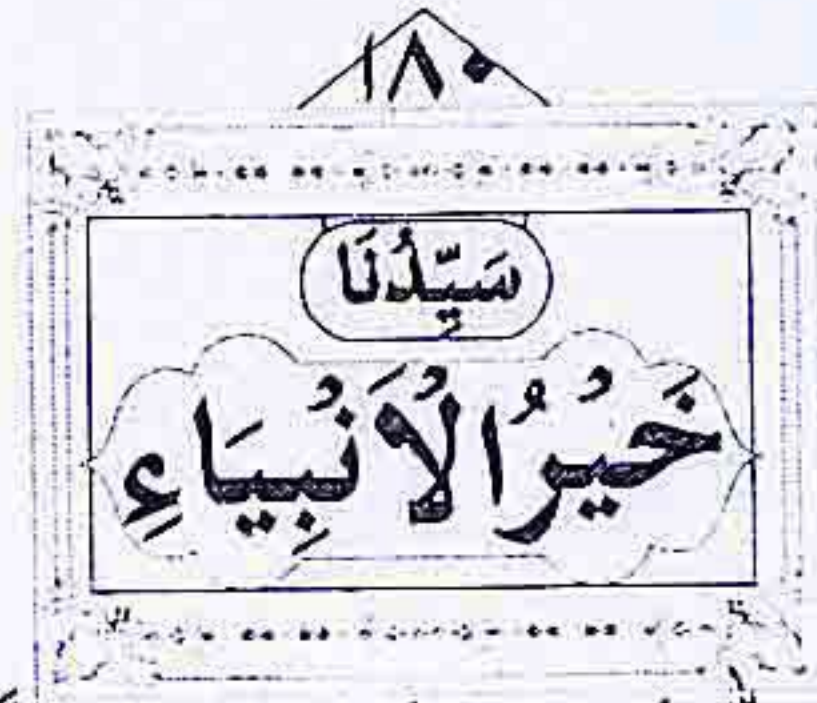 ١٨٠
سَيِّدُنَا
خَيْرُ الْاَنْبِيَاءِ